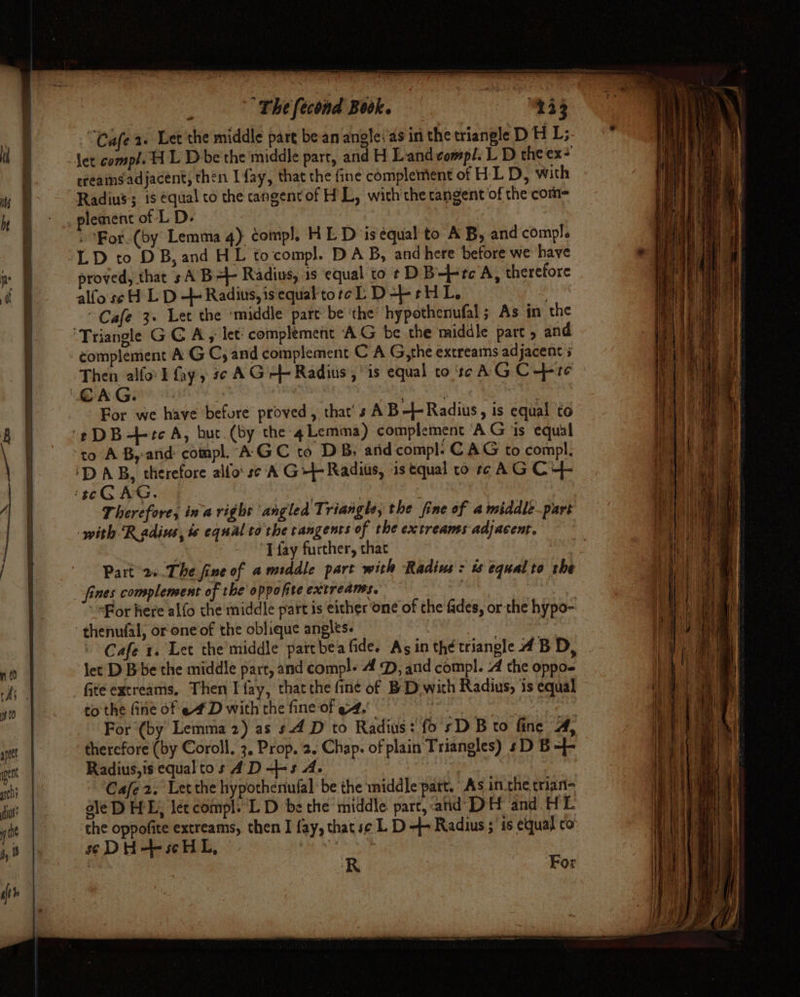 The ſecond Book. 113
Caſe 2. Let the middle part be an angle: as in the triangle D H L;
let compl. H L D be the middle part, and H L and compl. L D the ex-
treams adjacent, then I ſay, that the ſine complement of H L D, with
Radius; is equal to the tangent of H L, with the tangent of the com-
plement of L D.
For (by Lemma 4) compl. H L D is equal to A B, and compl.
L D to D B, and H L to compl. D A B, and here before we have
proved, that s A B + Radius, is equal to t D B + tc A, therefore
alſo sc H L D + Radius, is equal to tc L D + t H L.
Caſe 3. Let the middle part be the hypothenuſal; As in the
Triangle G C A, let complement A G be the middle part, and
complement A G C, and complement C A G, the extreams adjacent;
Then alſo I ſay, sc A G + Radius, is equal to tc A G C + tc
C A G.
For we have before proved, that s A B + Radius, is equal to
t D B + tc A, but (by the 4 Lemma) complement A G is equal
to A B, and compl. A G C to D B, and compl. C A G to compl.
D A B, therefore alſo sc A G + Radius, is equal to tc A G C +
tc C A G.
Therefore, in a right angled Triangle, the ſine of a middle part
with Radius, is equal to the tangents of the extreams adjacent.
I ſay further, that
Part 2. The ſine of a middle part with Radius: is equal to the
ſines complement of the oppoſite extreams.
For here alſo the middle part is either one of the ſides, or the hypo-
thenuſal, or one of the oblique angles.
Caſe 1. Let the middle part be a ſide. As in the triangle A B D,
let D B be the middle part, and compl. A D, and compl. A the oppo-
ſite extreams. Then I ſay, that the ſine of B D with Radius, is equal
to the ſine of A D with the ſine of A.
For (by Lemma 2) as s A D to Radius: ſo s D B to ſine A,
therefore (by Coroll. 3. Prop. 2. Chap. of plain Triangles) s D B +
Radius, is equal to s A D + s A.
Caſe 2. Let the hypothenuſal be the middle part. As in the trian-
gle D H L, let compl. L D be the middle part, and D H and H L
the oppoſite extreams, then I ſay, that sc L D + Radius; is equal to
sc D H + sc H L,
R For